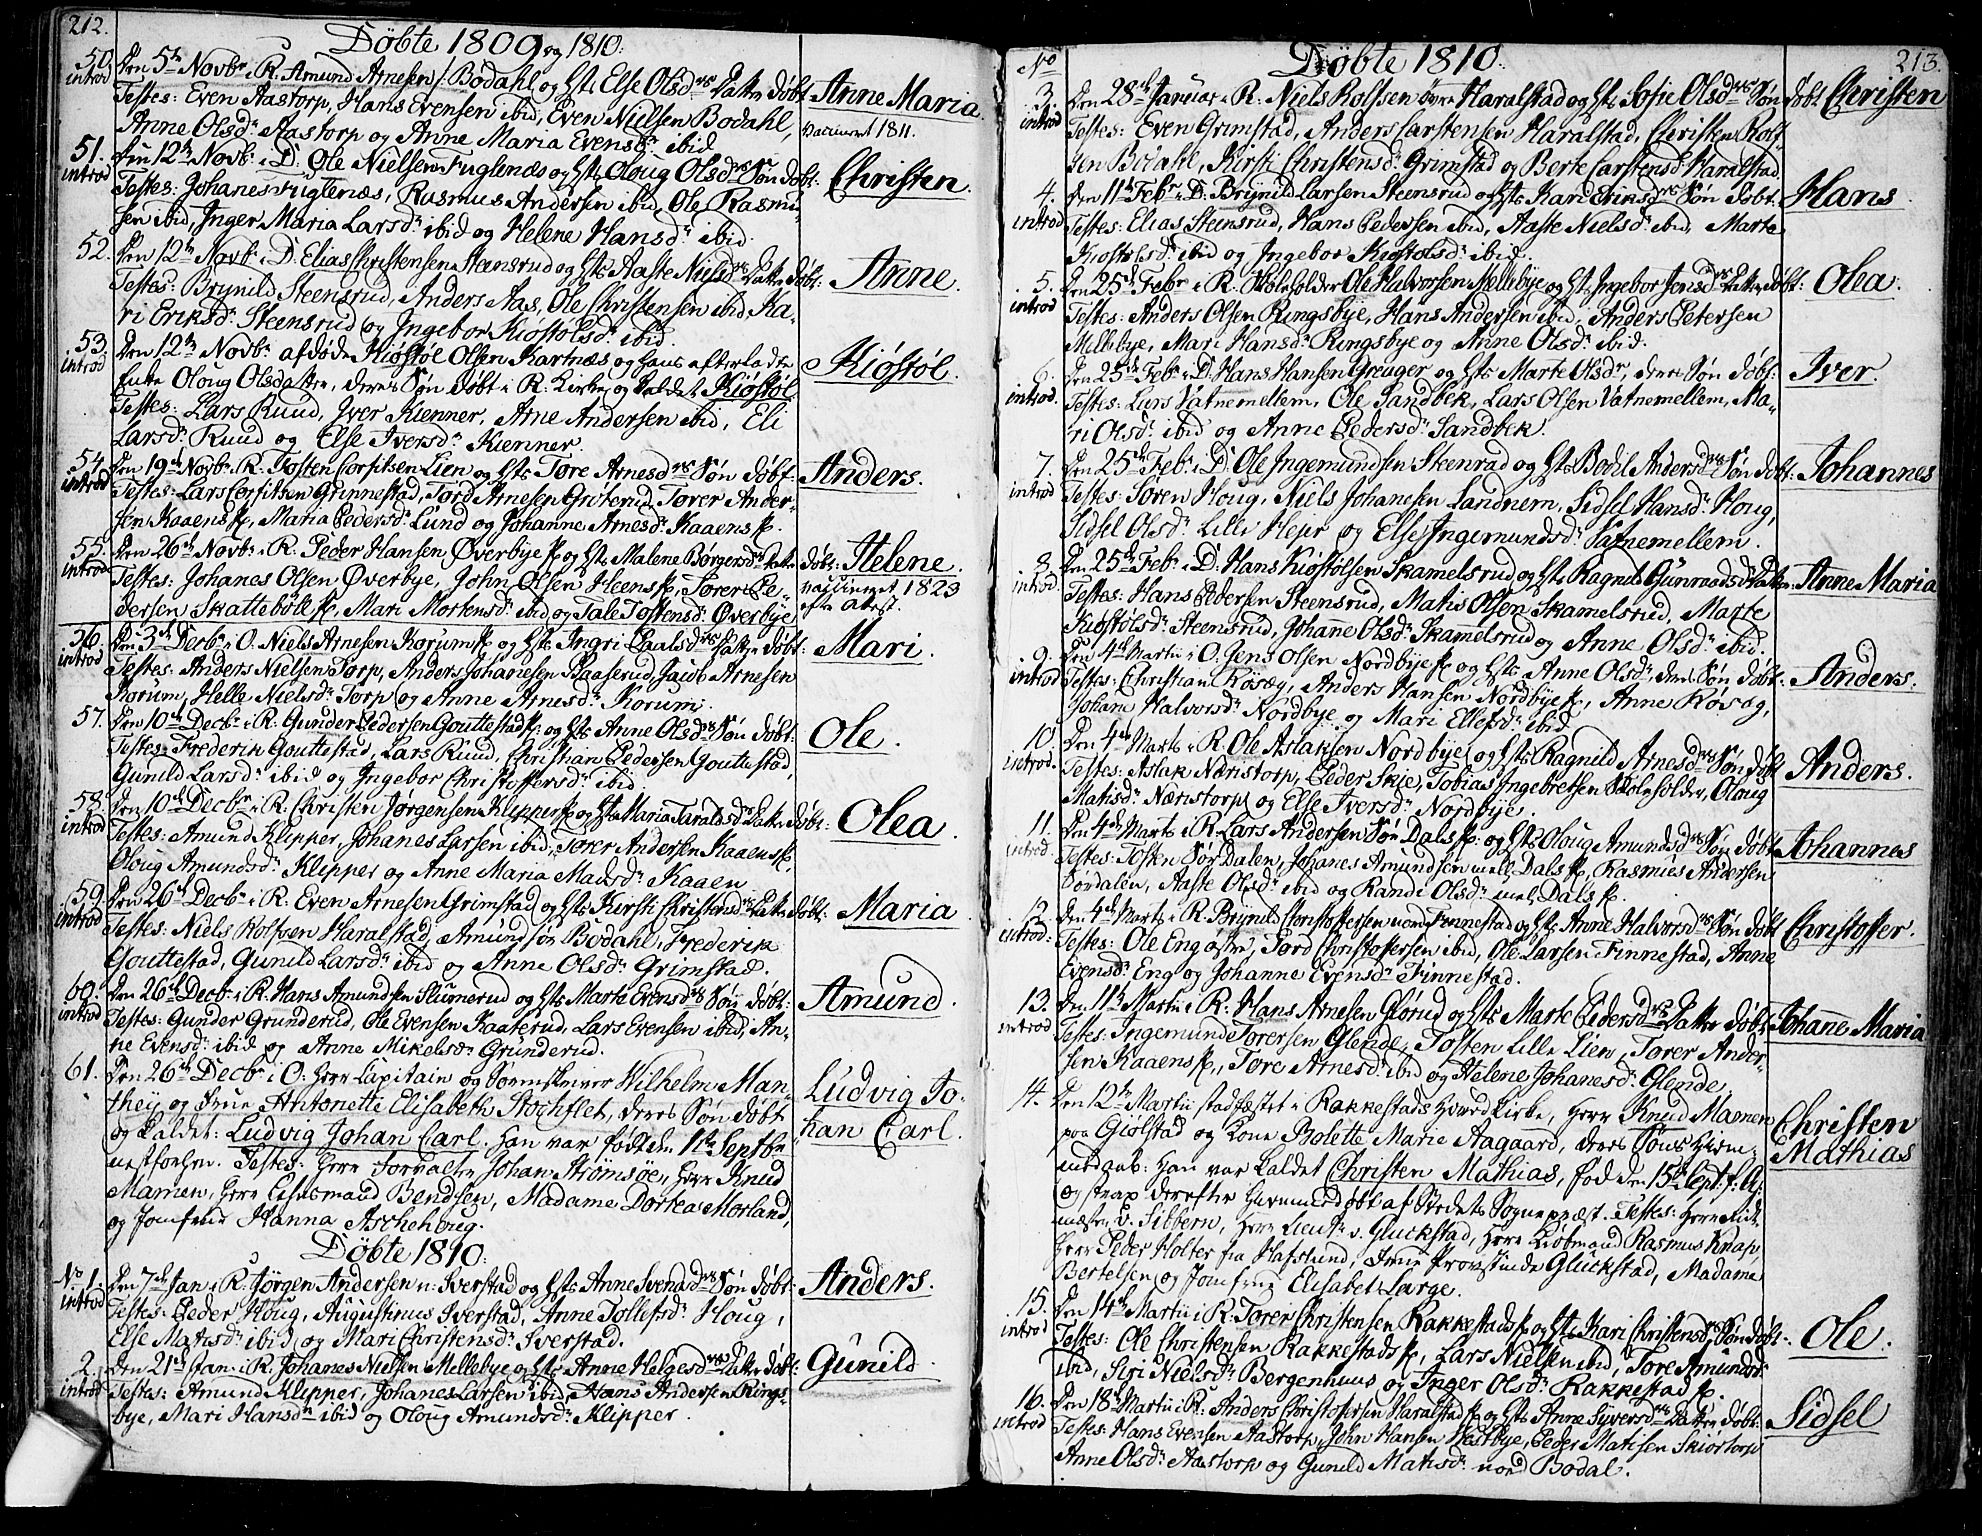 212.
Döbte 1809 og 1810.
50. Den 5te Novbr i R. Amund Arnesen Bodahl og Hst: Else Olsdr Datter döbt: Anne Maria.
introd Testes: Even Aastorp, Hans Evensen ibid, Even Nielsen Bodahl, vaccineret 1811.
Anne Olsdr Aastorp og Anne Maria Evensdr ibid
51. Den 12te Novbr i D: Ole Nielsen Fuglenæs og Hst: Oloug Olsdr Sön döbt: Christen.
introd Testes: Johanes Fuglenæs, Rasmus Andersen ibid, Ole Rasmu-
sen ibid, Inger Maria Larsdr ibid og Helene Hansdr ibid
52. Den 12te Novbr i D. Elias Christensen Steensrud og Hst: Aaste Nielsdr Datter döbt: Anne.
Testes: Brynild Steensrud, Anders Aas, Ole Christensen ibid, Ka-
ri Eriksdr Steensrud og Ingebor Kiöstolsdr ibid.
53. Den 12te Novbr afdöde Kiöstöl Olsen Kartnæs og hans efterladte Kiöstöl.
introd Enke Oloug Olsdatter, deres Sön döbt i R: Kirke og kaldet Kiöstöl
Testes: Lars Ruud, Iver Kienner, Arne Andersen ibid, Eli
Larsdr Ruud og Else Iversdr Kienner.
54. Den 19de Novbr i R. Tosten Corfitsen Lien og Hst: Tore Arnesdr Sön döbt: Anders.
introd Testes: Lars Corfitsen Grinnestad, Tord Arnesen Groterud, Torer Ander-
sen Kaaens, Maria Pedersdr Lund og Johanne Arnesdr Kaaens
55. Den 26de Novbr i R. Peder Hansen Överbye og Hst: Malene Börgersdr Datter döbt: Helene.
introd Testes: Johanes Olsen Överbye, John Olsen Heens, Torer Pe- vaccineret 1823
dersen Skatteböll, Mari Mortensdr ibid og Tale Tostensdr Överbye efter atest.
56. Den 3de Decbr i O. Niels Arnesen Korum og Hst: Ingri Paalsdr Datter döbt: Mari.
introd Testes: Anders Nielsen Torp, Anders Johanesen Baaserud, Jacob Arnesen
Korum, Helle Nielsdr Torp og Anne Arnesdr Korum.
57. Den 10de Decbr i R. Gunder Pedersen Gouttestad og Hst: Anne Olsdr Sön döbt: Ole.
Testes: Frederik Gouttestad, Lars Ruud, Christian Pedersen Gouttestad,
Gunild Larsdr ibid og Ingebor Christoffersdr ibid.
58. Den 10de Decbr i R. Christen Jörgensen Klipper og Hst: Maria Taraldsdr Datter döbt: Olea.
introd Testes: Amund Klipper, Johanes Larsen ibid, Torer Andersen Kaaens,
Oloug Amundsdr Klipper og Anne Maria Madsdr Kaaen
59. Den 26de Decbr i R. Even Arnesen Grimstad og Hst: Kirsti Christensdr Datter döbt: Maria.
introd Testes: Niels Rolfsen Haralstad, Amund sör Bodahl, Frederik
Gouttestad, Gunild Larsdr ibid og Anne Olsdr Grimstad.
60. Den 26de Decbr i R. Hans Amundsen Slumerud og Hst: Marte Evensdr Sön döbt: Amund.
introd Testes: Gunder Grunderud, Ole Evensen Kaaterud, Lars Evensen ibid, An-
ne Evensdr ibid og Anne Mikelsdr Grunderud.
61. Den 26de Decbr i O: Herr Capitain og Sorenskriver Wilhelm Man- Ludvig Jo-
they og Frue Antonette Elisabeth Stochflet, deres Sön döbt han Carl.
og kaldet: Ludvig Johan Carl. Han var födt den 11te Septbr
nestforhen. Testes: Herr Forvalter Johan Stromsöe, Herr Knud
Mamen, Herr Bendsen, Madame Dortea Morland,
og Jomfrue Hanna Aschehoug.
Döbte 1810:
No 1. Den 7de Jan i R. Jörgen Andersen n: Iverstad og Hst: Anne Svendsdr Sön döbt: Anders.
introd Testes: Peder Houg, Augustinus Iverstad, Anne Tollefsdr Houg,
Else Matisdr ibid og Mari Christensdr Iverstad.
2. Den 21de Jan: i R. Johanes Nielsen Mellebye og Hst: Anne Helgesdr Datter döbt: Gunild.
introd Testes: Amund Klipper, Johanes Larsen ibid, Hans Andersen Rings-
bye, Mari Hansdr ibid og Oloug Amundsdr Klipper.
213.
No Döbte 1810.
3. Den 28de Januar i R. Niels Rolfsen övre Haralstad og Hst: Sofie Olsdr Sön döbt Christen
introd Testes: Even Grimstad, Anders Carstensen Haralstad, Christen Rolf-
sen Bodahl, Kirsti Christensdr Grimstad og Berte Carstensdr Haralstad.
4. Den 11te Febr i D: Brynild Larsen Steensrud og Hst: Kari Eriksdr Sön döbt: Hans.
introd Testes: Elias Steensrud, Hans Pedersen ibid, Aaste Nielsdr ibid, Marte
Kiöstolsdr ibid og Ingebor Kiöstolsdr ibid.
5. Den 25de Febr i R. Skoleholder Ole Halvorsen Mellebye og Hst: Ingebor Jensdr Datter döbt: Olea.
introd Testes: Anders Olsen Ringsbye, Hans Andersen ibid, Anders Petersen
Mellebye, Mari Hansdr Ringsbye og Anne Olsdr ibid.
6. Den 25de Febr i D: Hans Hansen Greager og Hst: Marte Olsdr, deres Sön döbt: Iver.
introd. Testes: Lars Vatnemellem, Ole Sandbek, Lars Olsen Vatnemellem, Ma-
ri Olsdr ibid og Anne Pedersdr Sandbek.
7. Den 25de Febr i D: Ole Ingemundsen Skenrad og Hst: Bodil Andersdr Sön döbt: Johannes
introd Testes: Sören Houg, Niels Johanesen Landnem, Sidsel Hansdr Houg,
Sidsel Olsdr Lille Hejer og Else Ingemundsdr Vatnemellem.
8. Den 25de Febr i D: Hans Kiöstölsen Skamelsrud og Hst: Ragnild Gunvaldsdr Datter Anne Maria
introd Testes: Hans Pedersen Steensrud, Matis Olsen Skamelsrud, Marte
Kiöstölsdr Steensrud, Johanne Olsdr Skammelsrud og Anne Olsdr ibid.
9. Den 4de Martii i O. Jens Olsen Nordbye og Hst: Anne Olsdr deres Sön döbt: Anders.
introd Testes: Christian Rösæg, Anders Hansen Nordbye, Anne Rösæg,
Johane Halvorsdr Nordbye og Mari Ellefsdr ibid
10. Den 4de Marts i R. Ole Aslaksen Nordbye og Hst: Ragnild Arnesdr Sön döbt Anders.
introd. Testes: Aslak Næristorp, Peder Skje, Tobias Ingebretsen Skoleholder, Oloug
Matisdr Næristorp og Else Iversdr Nordbye.
11. Den 4de Marts i R. Lars Andersen Sör Dals og Hst: Oloug Amundsdr Sön döbt Johannes
introd. Testes: Tosten Sör Dalen, Johanes Amundsen mell: Dals, Rasmus Andersen
Sördalen, Aaste Olsdr ibid og Randi Olsdr mel: Dals.
12. Den 4de Marts i R. Brynild Christoffersen Finnestad og Hst: Anne Halvorsdr Sön döbt Christoffer.
introd: Testes: Ole Eng, Tord Christoffersen ibid, Ole Larsen Finnestad, Anne
Evensdr Eng og Johanne Evensdr Finnestad.
13. Den 11te Martii i R. Hans Arnesen Glörud og Hst: Marte Pedersdr Datter döbt Johane Maria
introd Testes: Ingemund Torersen Glende, Tosten Lille Lien, Torer Ander-
sen Kaaens, Tore Arnesdr ibid og Helene Johanesdr Glende.
14. Den 12te Martii stadfæstet i Rakkestads Hoved Kirke, Herr Knud Mamen Christen
paa Giölstad og Kone Bolette Marie Aagaard, deres Söns Hiem- Mathias
medaab: Han var kaldet Christen Mathias, föd den 15de Sept: f: A:
og strax derefter hiemmedöbt af Stedets Sognepræst. Testes: Herr Rit-
mester v. Sibbern, Herr Lieut: v. Gluckstad, Herr Kiöbmand Rasmus Knap
Herr Peder Holter fra Hafslund, Frue Provstinde Glückstad, Madame
Bertelsen og Jomfrue Elisabet Large.
15. Den 14de Martii i R. Torer Christensen Rakkestads og Hst: Kari Christensdr Sön döbt: Ole.
introd Testes: Ole Christensen Rakkestads, Lars Nielsen ibid, Tore Amundsdr
ibid, Siri Nielsdr Bergenhuus og Inger Olsdr Rakkestad.
16. Den 18de Martii i R: Anders Christofersen Haralstad og Hst: Anne Syversdr Datter döbt: Sidsel
introd Testes: Hans Evensen Aastorp, John Hansen Vestbye, Peder Matisen Skiörtorp
Anne Olsdr Aastorp og Gunild Matisdr nord Bodal.